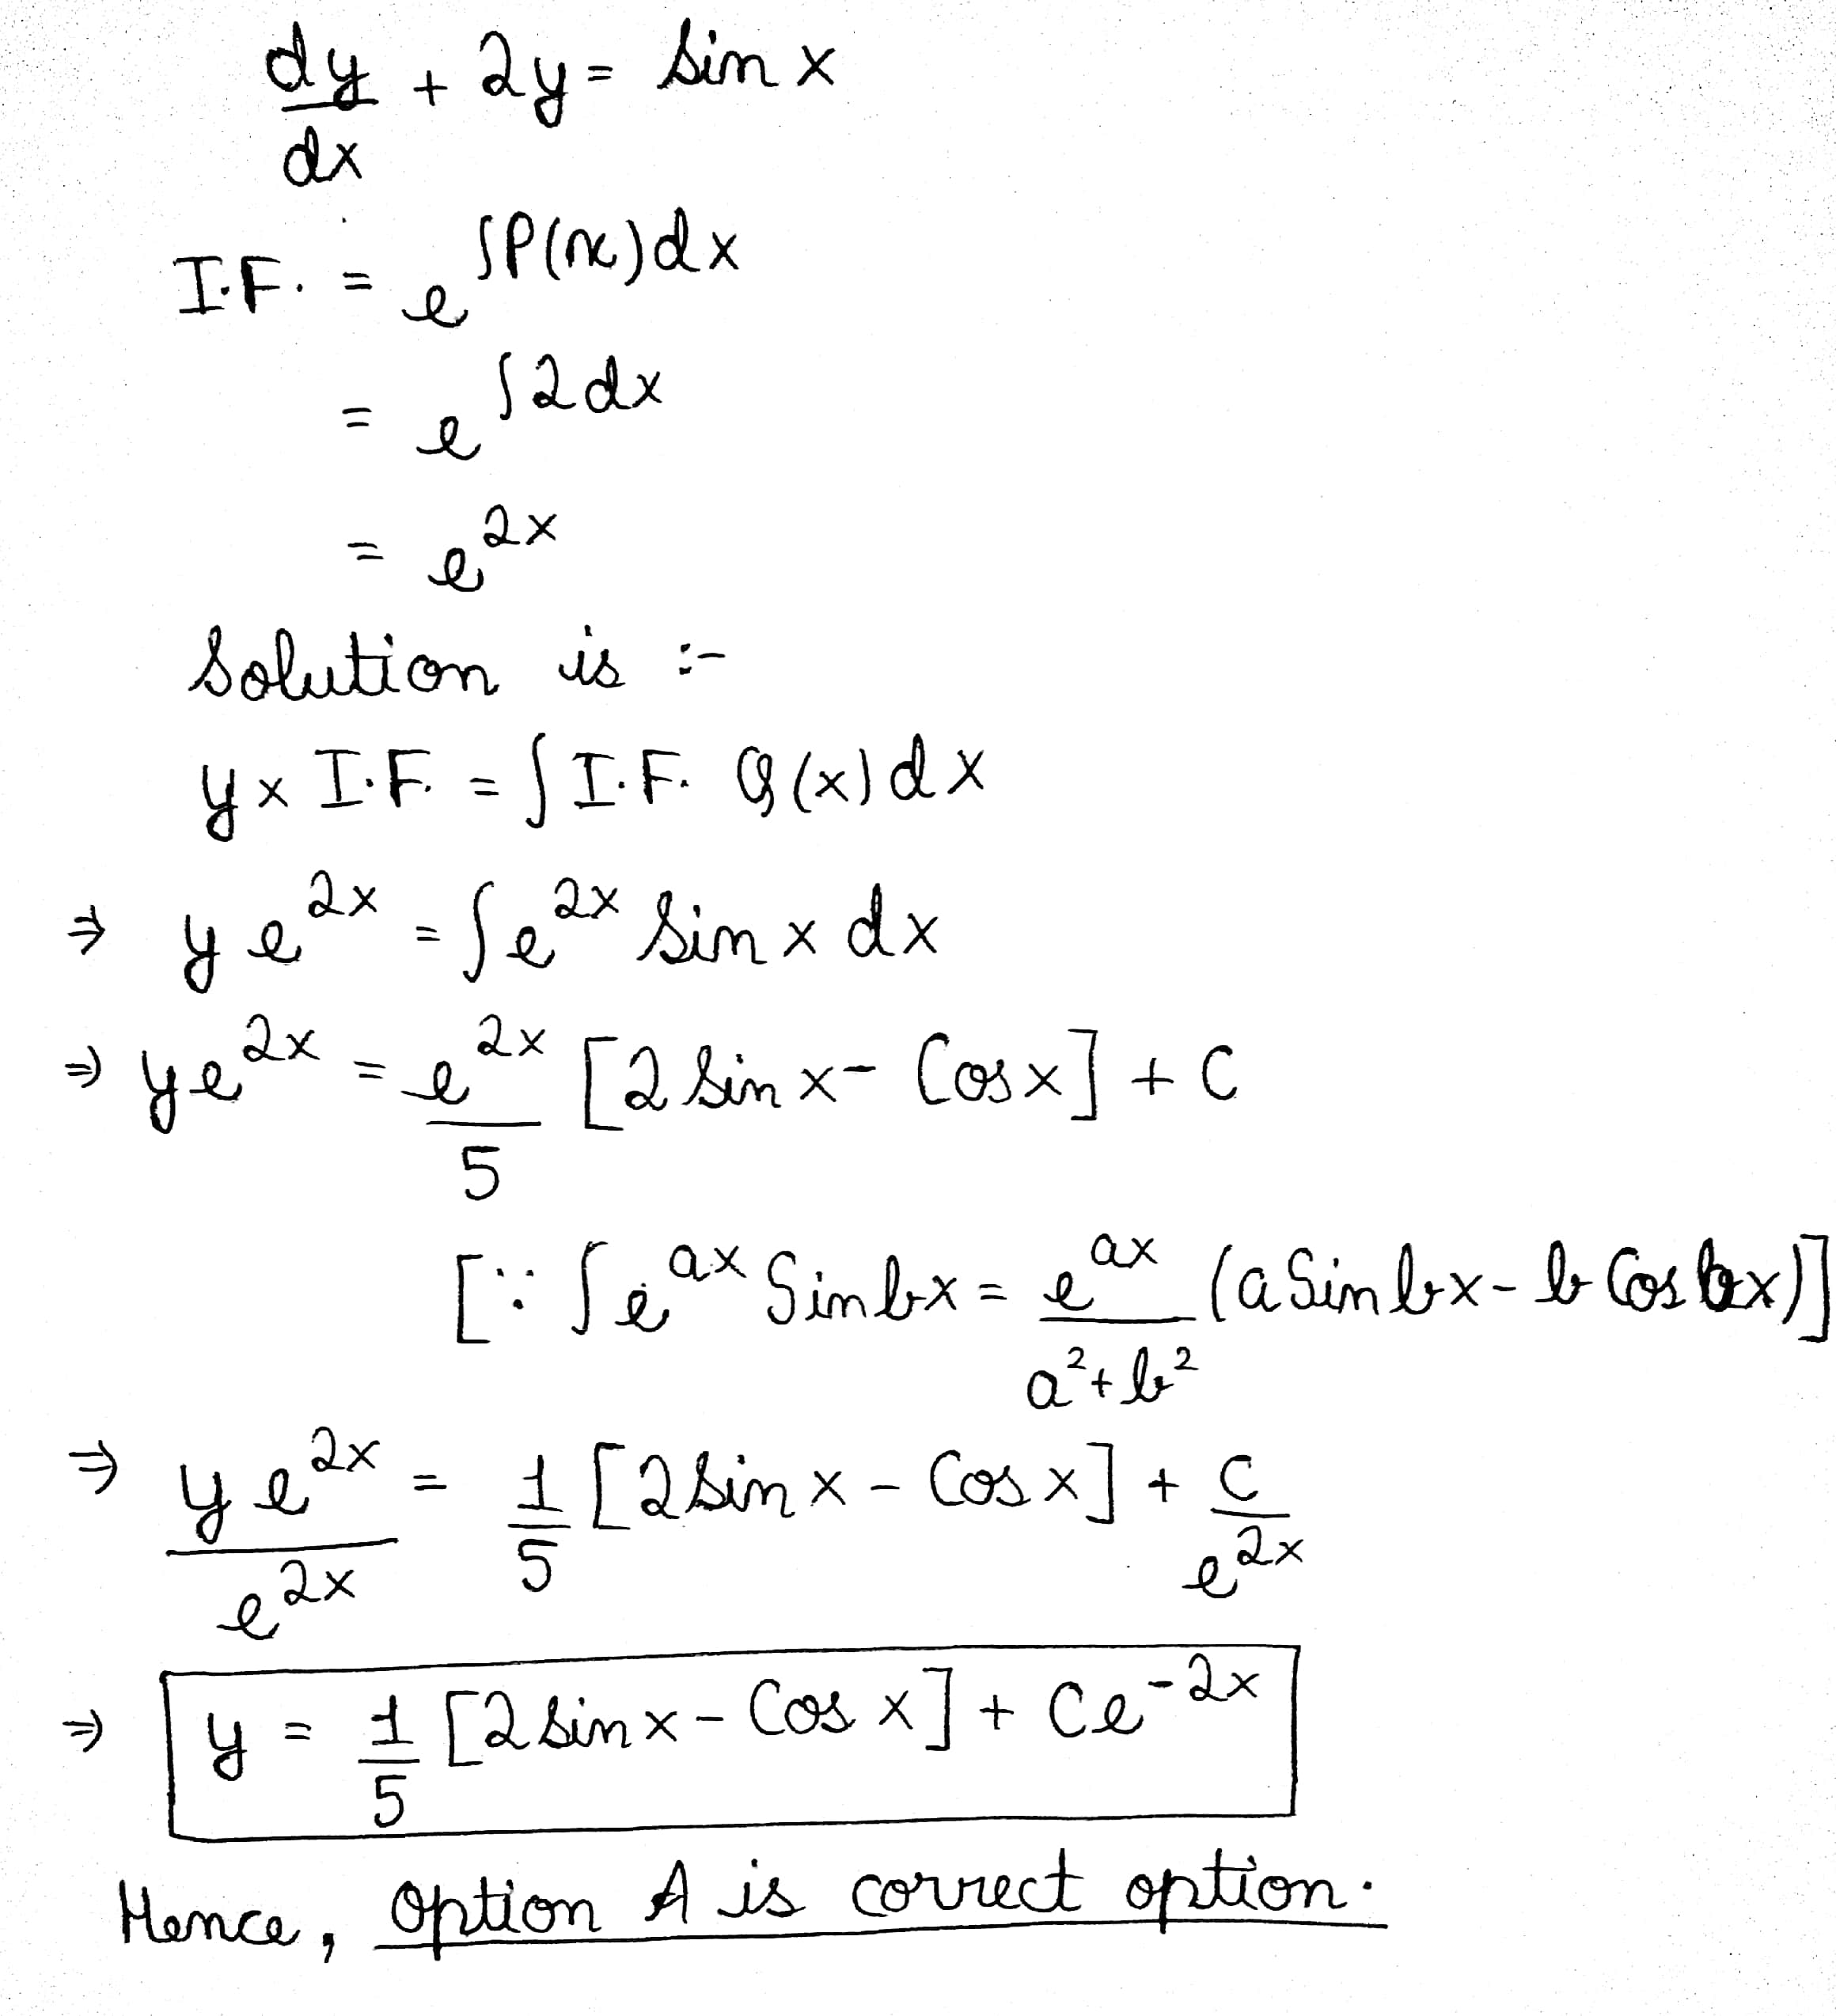 dy/dx + 2y = sin x
I.F. = e^∫P(x)dx
= e^∫2dx
= e^2x
Solution is :-
y × I.F. = ∫ I.F. Q(x) dx
⇒ y e^2x = ∫e^2x sin x dx
⇒ ye^2x = e^2x/5 [2 sin x - Cos x] + C
[∵ ∫e^ax Sin bx = e^ax/(a²+b²) (a Sin bx - b Cos bx)]
⇒ y e^2x/e^2x = 1/5 [2 sin x - Cos x] + C/e^2x
⇒ y = 1/5 [2 sin x - Cos x] + Ce^-2x
Hence, Option A is correct option.